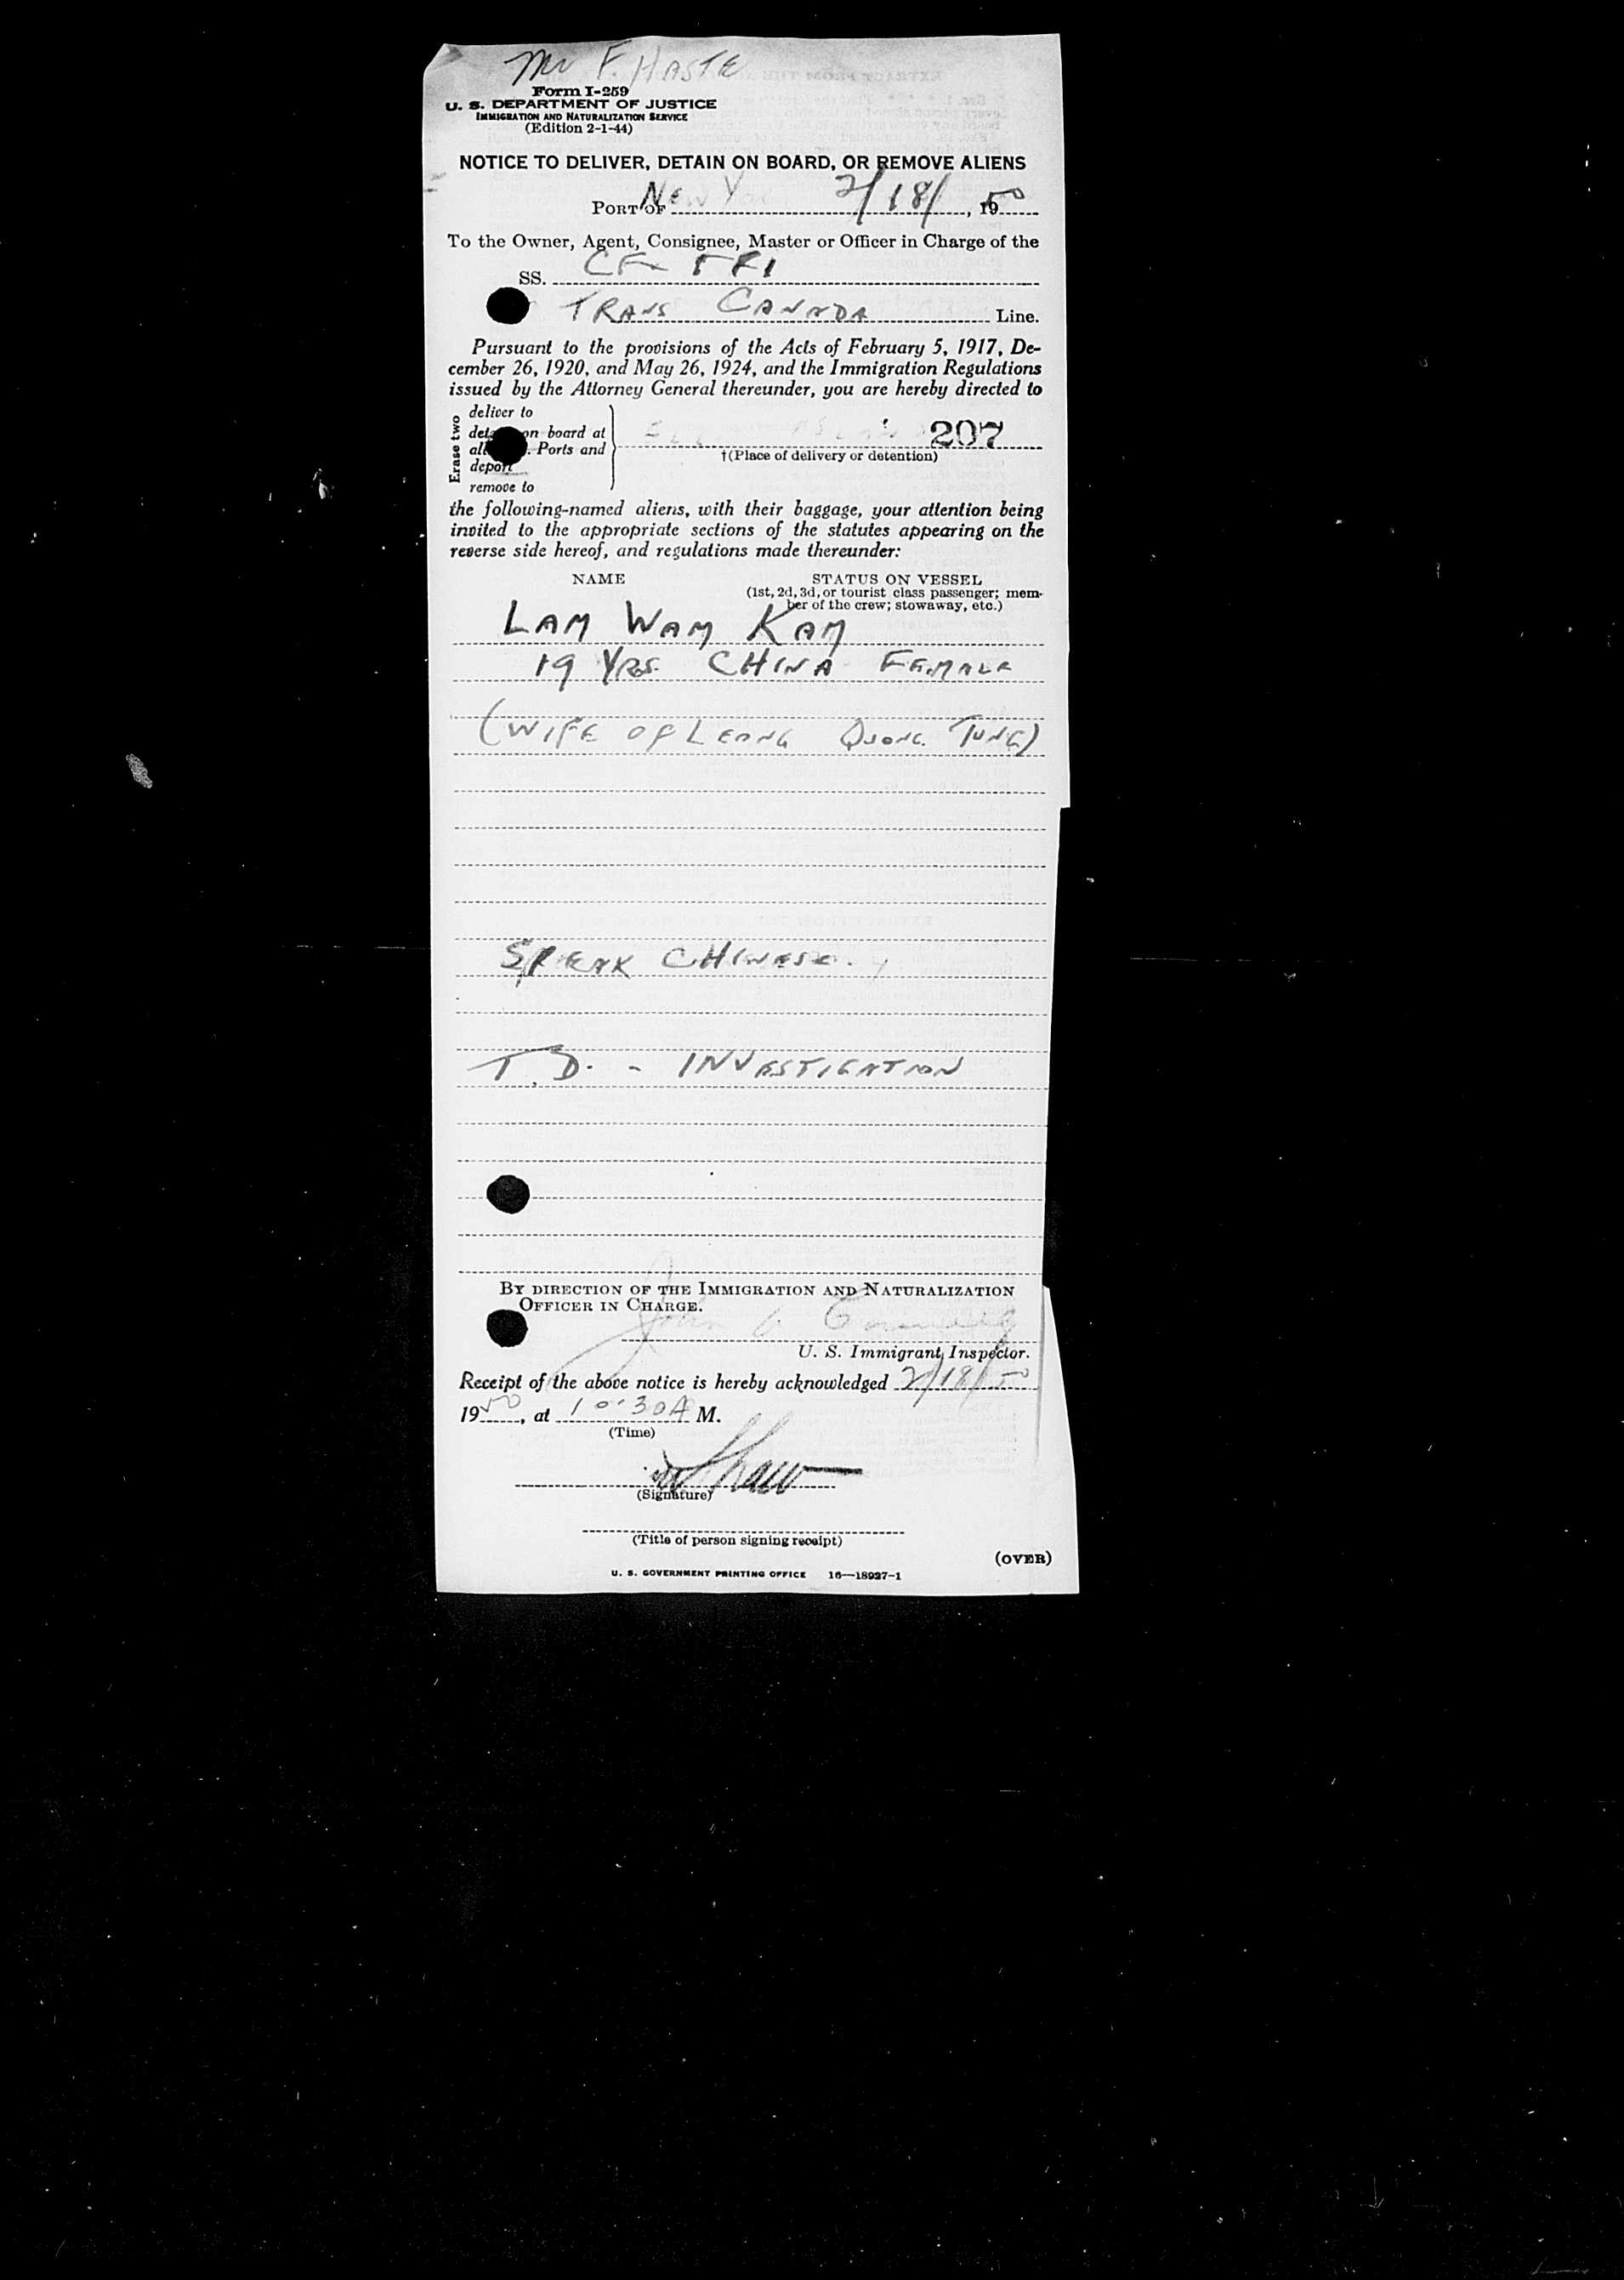 Mr F. HASTE
Form I-259
U. S. DEPARTMENT OF JUSTICE
IMMIGRATION AND NATURALIZATION SERVICE
(Edition 2-1-44)
NOTICE TO DELIVER, DETAIN ON BOARD, OR REMOVE ALIENS
PORT OF New York 2/18/, 1950
To the Owner, Agent, Consignee, Master or Officer in Charge of the
SS. CF-
TRANS CANADA Line.
Pursuant to the provisions of the Acts of February 5, 1917, De-
cember 26, 1920, and May 26, 1924, and the Immigration Regulations
issued by the Attorney General thereunder, you are hereby directed to
Erase two
deliver to
on board at
Ports and
deport
remove to
207
†(Place of delivery or detention)
the following-named aliens, with their baggage, your attention being
invited to the appropriate sections of the statutes appearing on the
reverse side hereof, and regulations made thereunder:
NAME STATUS ON VESSEL
(1st, 2d, 3d, or tourist class passenger; mem-
ber of the crew; stowaway, etc.)
LAM WAM KAM
19 YRS. CHINA FEMALE
(WIFE OF LEANG QUONG TUNG)
SPEAK CHINESE.
T.D. - INVESTIGATION
BY DIRECTION OF THE IMMIGRATION AND NATURALIZATION
OFFICER IN CHARGE.
John
U. S. Immigrant Inspector.
Receipt of the above notice is hereby acknowledged 2/18/50
1950, at 10:30A M.
(Time)
Shaw
(Signature)
(Title of person signing receipt)
(OVER)
U. S. GOVERNMENT PRINTING OFFICE 16—18927-1